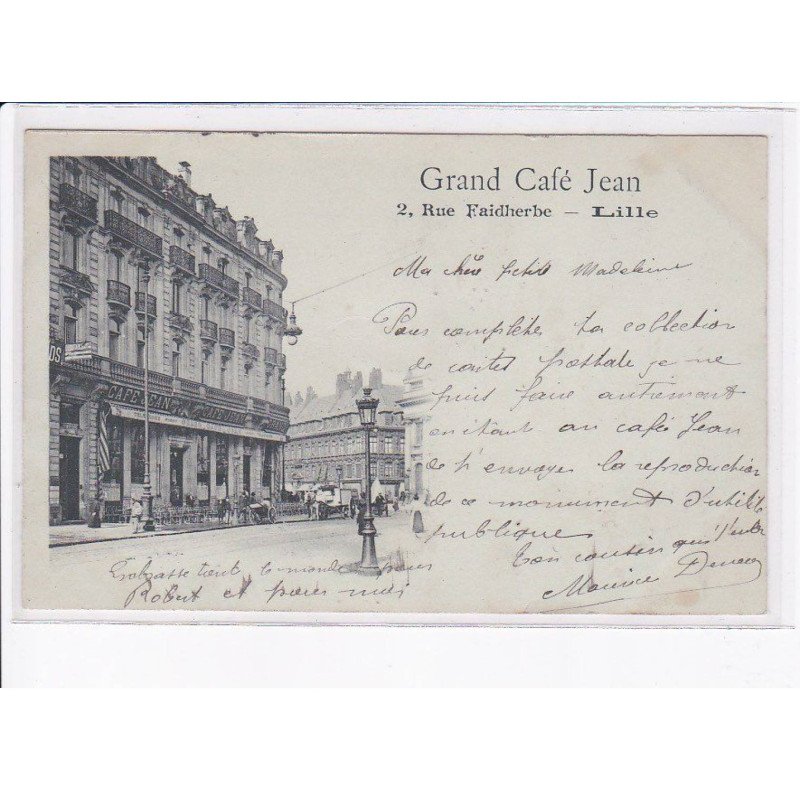 Grand Café Jean
2, Rue Faidherbe — Lille
Ma chère petite Madeleine
Pour compléter ta collection
de cartes postale je ne
puis faire autrement
en étant au café Jean
de t'envoyer la reproduction
de ce monument d'utilité
publique
ton cousin qui t'
Maurice
Embrasse tout le monde pour
Robert et pour moi
CAFÉ JEAN